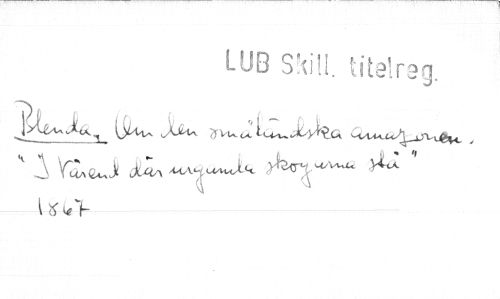 LUB Skill. titelreg.
Blenda. Om den småländska amazonen.
"I Värend där urgamla skogarna stå"
1867